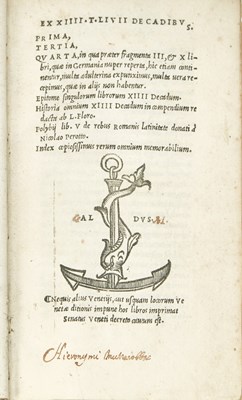 EX XIIII.T.LIVII DECADIBVS.
PRIMA,
TERTIA,
QVARTA, in qua præter fragmenta III, & X li
bri, quæ in Germania nuper reperta, hic etiam conti
nentur, multa adulterina expunximus, multa uera re
cepimus, quæ in alijs non habentur.
Epitome singulorum librorum XIIII Decadum.
Historia omnium XIIII Decadum in compendium re
dacta ab L. Floro.
Polybij lib. V de rebus Romanis Latinitate donati à
Nicolao Perotto.
Index copiosissimus rerum omnium memorabilium.
AL DVS
Nequis alius Venetijs, aut usquam locorum Ve
netæ ditionis impune hos libros imprimat
Senatus Veneti decreto cautum est.
Hieronymi